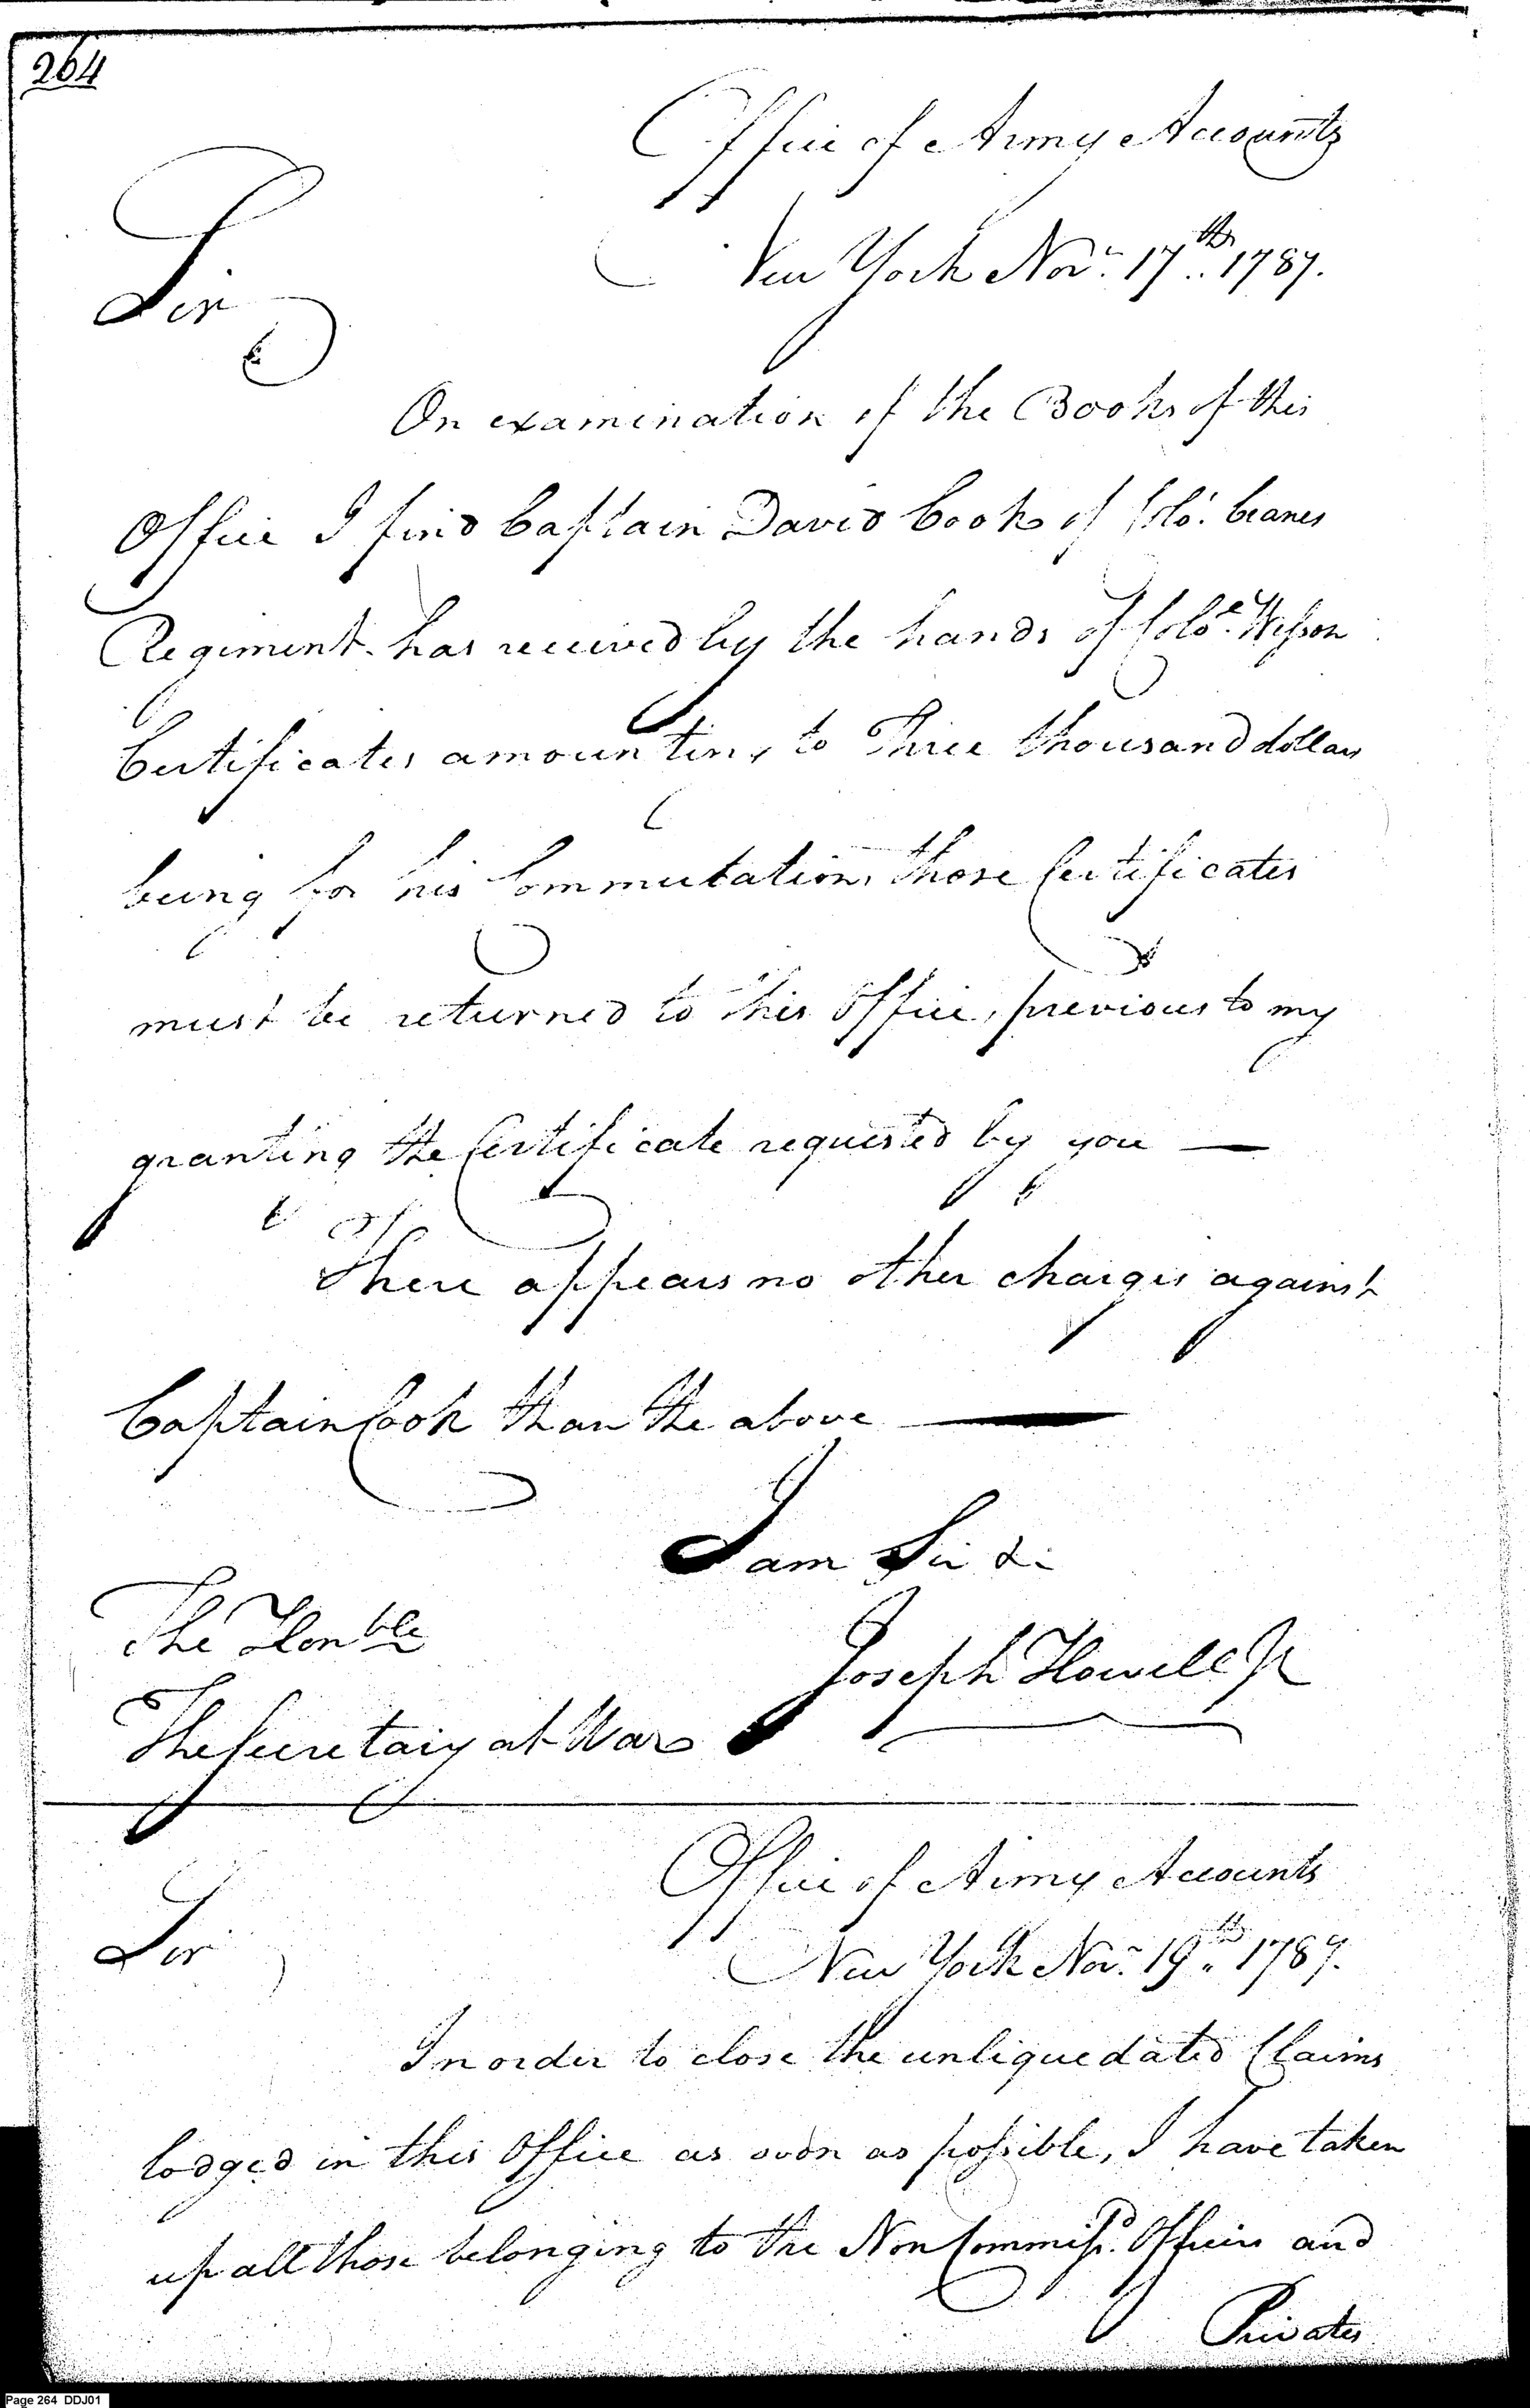 264
Office of Army Accounts
New York Nov.r 17th 1787.
Sir
On examination of the Books of this
Office I find Captain David Cook of Colo. Cranes
Regiment has received by the hands of Colo. Wesson
Certificates amounting to Three thousand dollars
being for his Commutation, those Certificates
must be returned to this Office, previous to my
granting the Certificate requested by you —
There appears no other charges against
Captain Cook than the above —
I am Sir &c
The Honble
Joseph Howell Jr
The Secretary at War
Office of Army Accounts
Sir
New York Nov.r 19th 1787.
In order to close the unliquedated Claims
lodged in this Office as soon as possible, I have taken
up all those belonging to the Non Commissd. Officers and
Privates
Page 264 DDJ01